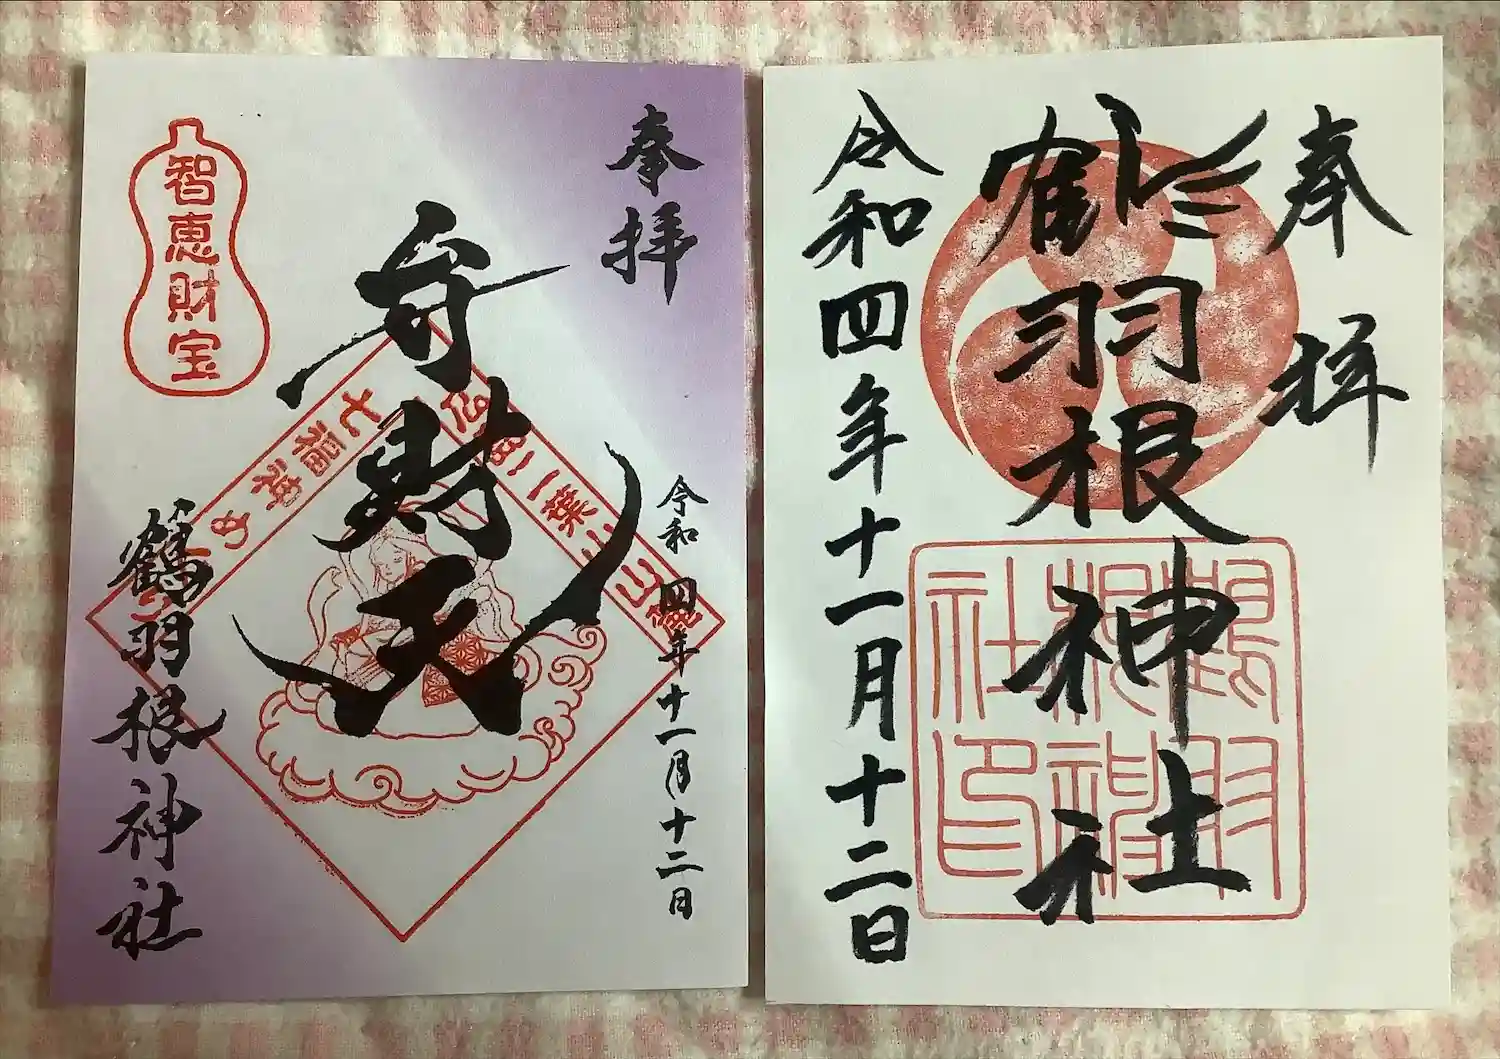 奉拝
弁財天
令和四年十一月十二日
智恵財宝
七福神め
二葉
鶴羽根神社
奉拝
鶴羽根神社
令和四年十一月十二日
鶴羽根神社印